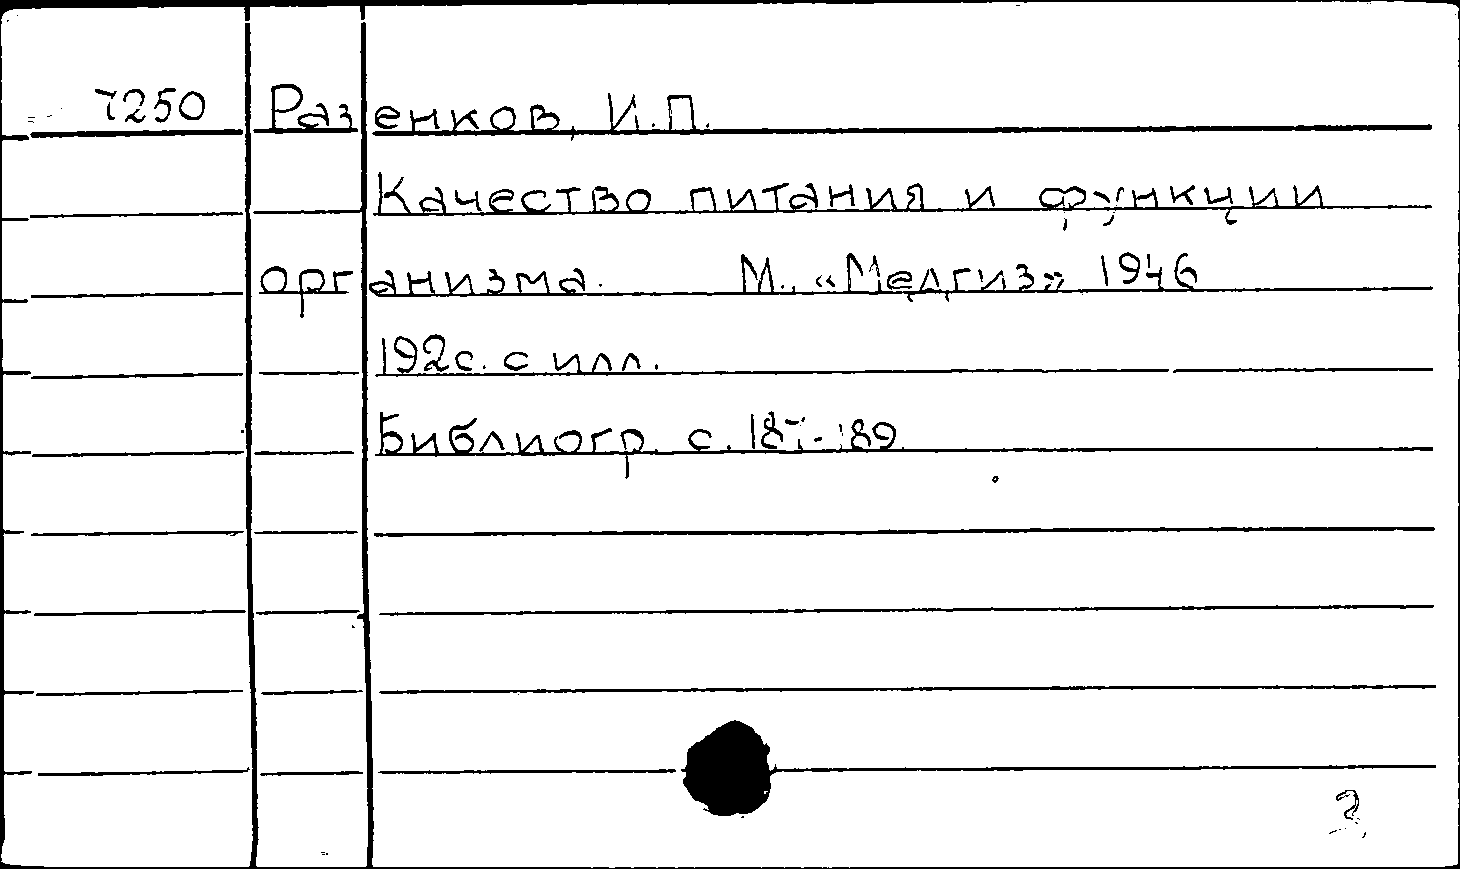 7250 Разенков, И.П.
Качество питания и функции
организма. М., «Медгиз» 1946
192с. с илл.
Библиогр. с. 187-189